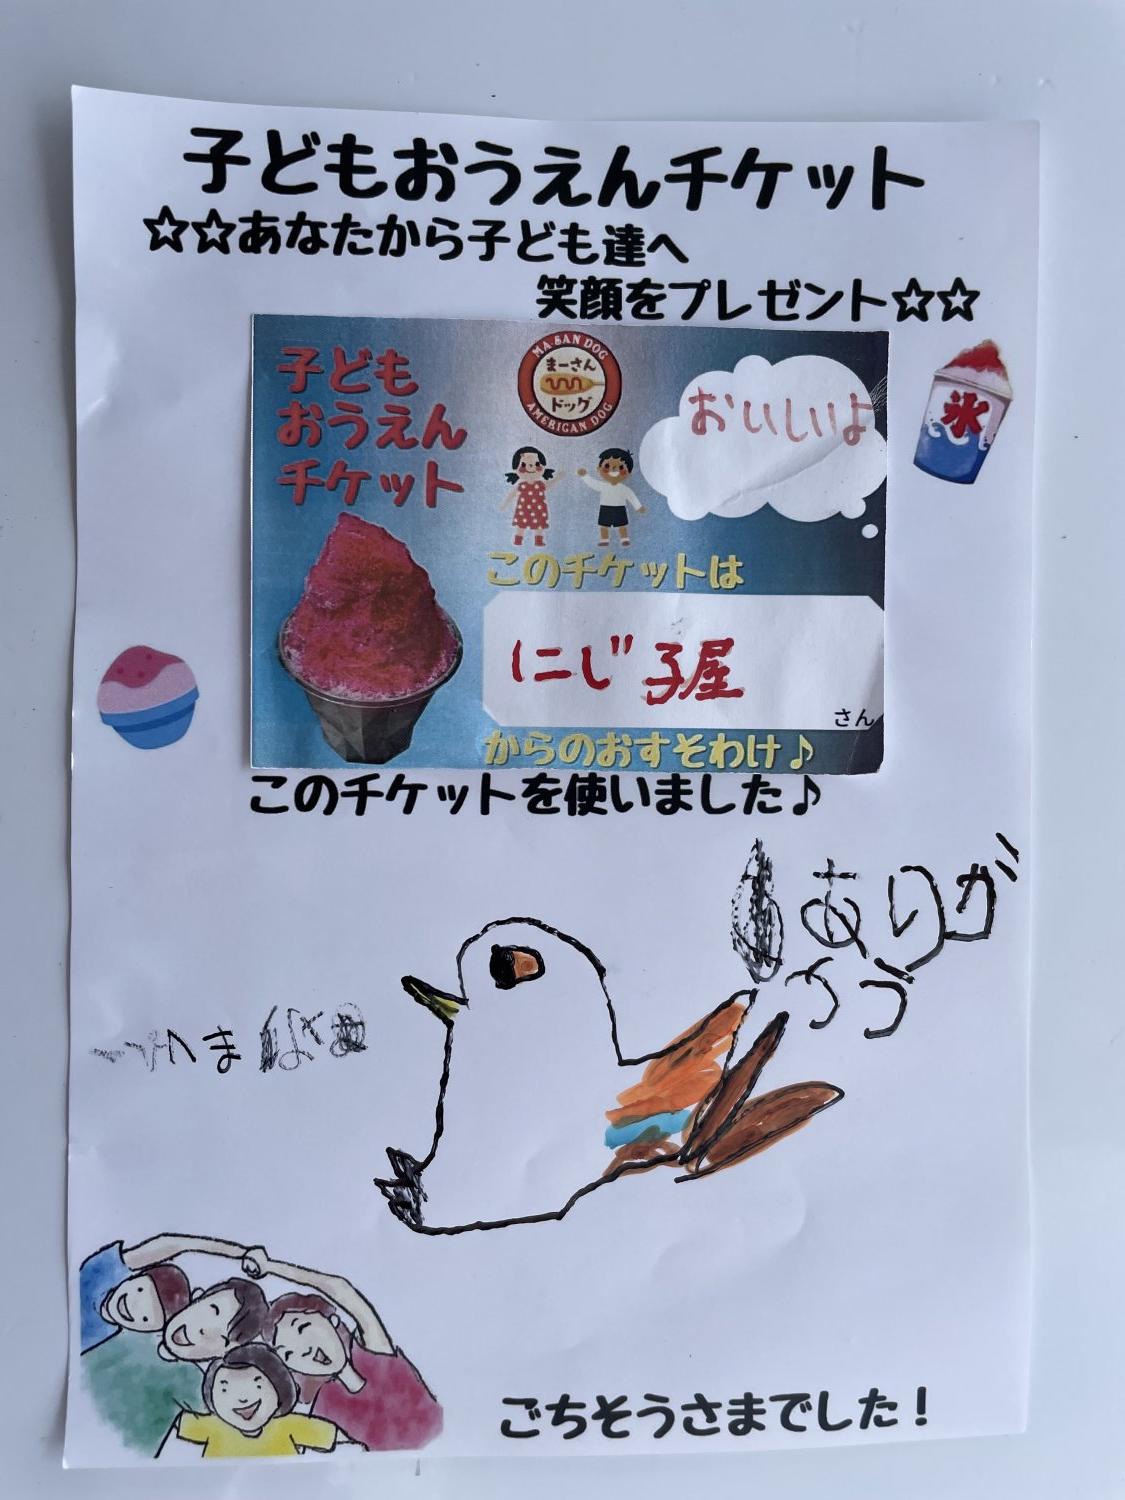 子どもおうえんチケット
☆☆あなたから子ども達へ
笑顔をプレゼント☆☆
子ども
おうえん
チケット
MA SAN DOG
まーさん
ドッグ
AMERICAN DOG
おいしいよ
氷
このチケットは
にじ子屋
さん
からのおすそわけ♪
このチケットを使いました♪
ありが
とう
ごちそうさまでした！